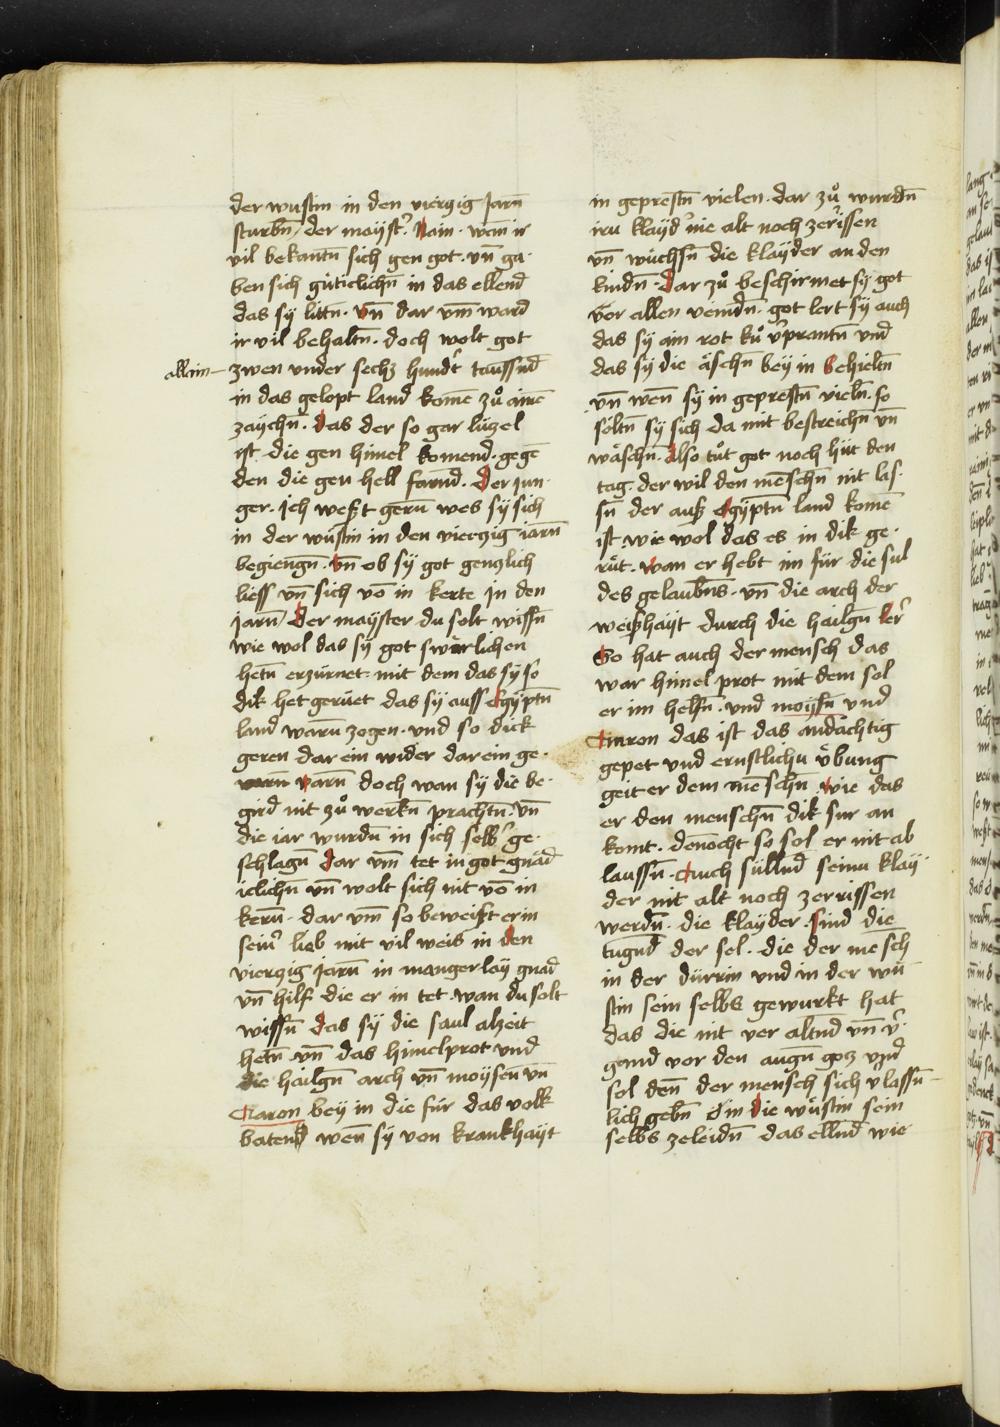 der wustin in den viergig Jarn̄
sturbn̄ / der mayst᷑. Nain. wan̄ ir
vil bekantn̄ sich gen got. vn̄ ga
ben sich güticlichn̄ in das ellend̄
das sy littn̄. vn̄ dar vm̄ ward
ir vil behaltn̄. doch wolt got
allain zwen vnder sechz hund᷑t taussnd̄
in das gelopt land komē zů ainē
zaychn̄. das der so gar lüzel
ist die gen himel komend. gegē
den die gen hell farnd̄. Der jun
ger. jch weßt gern̄ wes sy sich
in der wüstin in den viergig iarn̄
begiengn̄. vn̄ ob sy got genzlich
liess vn̄ sich vō in kerte jn den
jarn̄ Der mayster du solt wissn̄
wie wol das sy got swärlichen
hetn̄ erzürnet. mit dem das sy so
dik het gerüet das sy auss egyptn̄
land warn̄ zogen. vnd so dick
geren dar ein wider dar ein ge
warn̄ doch wan sy die be
gird nit zů werkn̄ prachtn̄. vn̄
die iar wurdn̄ in sich selb᷑ ge
schlagn̄ Dar vm̄ tet in got gnäd
iclichn̄ vn̄ wolt sich nit vō in
kern̄. dar vm̄ so beweißt er in
sein᷑ lieb mit vil weis in den
viergig jarn̄ in mangerlay gnad
vn̄ hilf die er in tet. wan du solt
wissn̄ das sy die saul alzeit
hetn̄ vn̄ das himelprot vnd
die hailgn̄ arch vn̄ moysen vn̄
Aaron bey in die für das volk
batend wen̄ sy von krankhayt
in geprestn̄ vielen. dar zů wurdn̄
iru klayd᷑ nie alt noch zerissen
vn̄ wüchsn̄ die klayder an den
kindn̄. Dar zů beschirmet sy got
vor allen veindn̄. got lert sy auch
das sy ain rot ků v᷑prantn̄ vnd
das sy die äschn̄ bey in behieltn̄
vn̄ wen̄ sy in geprestn̄ vieln̄. so
soltn̄ sy sich da mit bestreichn̄ vn̄
wäschn̄. Also tůt got noch hüt den
tag. der wil den mēschn̄ nit las
sn̄ der auß Egyptn̄ land komē
ist. wie wol das es in dik ge
rüt. wan er hebt im für die sul
des gelaubn̄s. vn̄ die arch der
weißhayt durch die hailgn̄ ler᷑
So hat auch der mensch das
war himel prot mit dem sol
er im helfn̄. vnd moysn̄ vnd
Aaron das ist das andächtig
gepet vnd ernstlichu v̈bung
geit er dem mēschn̄ wie das
er den menschn̄ dik sur an
komt. dēnocht so sol er nit ab
laussn̄. Auch süllnd̄ seinu klay
der nit alt noch zerrissen
werdn̄. die klayder sind die
tugnd̄ der sel. die der mēsch
in der dürrin vnd in der wü
stin sein selbs gewurkt hat
das die nit ver altnd̄ vn̄ v᷑
gand vor den augn̄ gotz vnd̄
sol den̄ der mensch sich v᷑lassn̄
lich gebn̄ in die wüstin sein
selbs zeleidn̄ das ellnd̄ wie